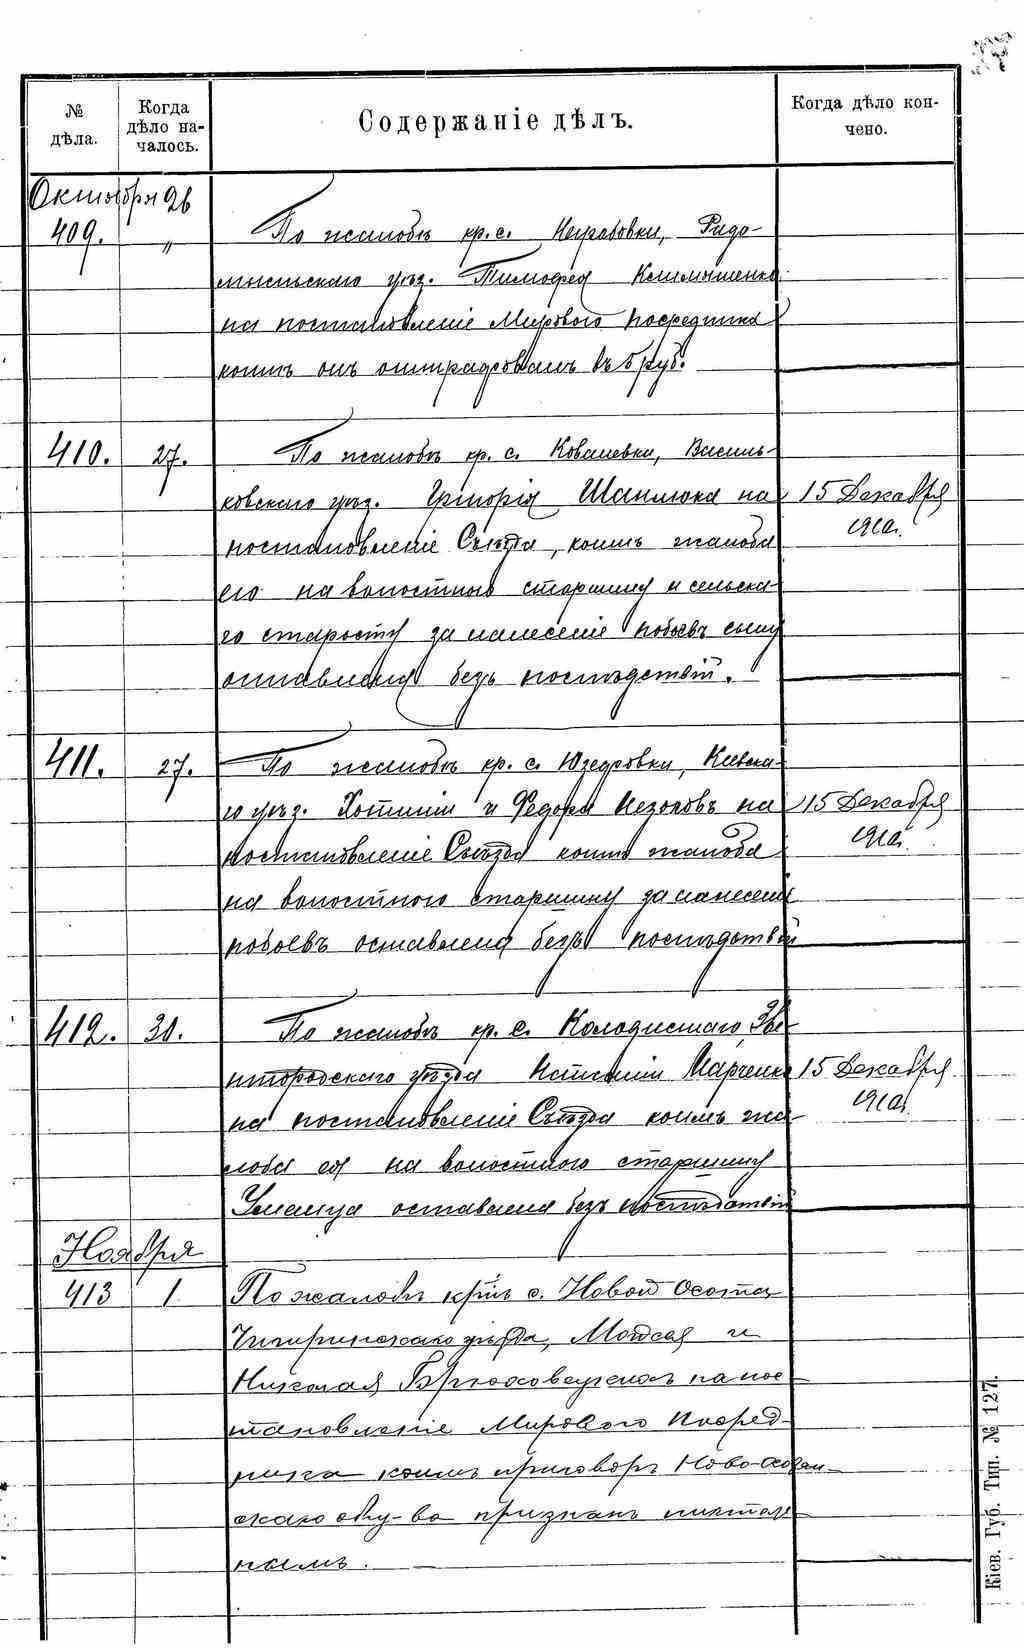 № дѣла.
Когда дѣло началось.
Содержаніе дѣлъ.
Когда дѣло кончено.
Октября 26
409. „ По жалобѣ кр. с. Негребовки, Радо-
мысльскаго уѣз. Тимофея Климашенко
на постановленіе Мирового Посредника
коимъ онъ оштрафованъ въ 5 руб.
410. 27. По жалобѣ кр. с. Ковалевки, Василь-
ковскаго уѣз. Григорія Шаплюка на 15 Декабря
постановленіе Съѣзда, коимъ жалоба 1910г.
его на волостного старшину и сельска-
го старосту за нанесеніе побоевъ сыну
оставлена безъ послѣдствій.
411. 27. По жалобѣ кр. с. Юзефовки, Кіевска-
го уѣз. Хотины и Федора на 15 Декабря
постановленіе Съѣзда коимъ жалоба 1910г.
на волостного старшину за нанесеніе
побоевъ оставлена безъ послѣдствій
412. 30. По жалобѣ кр. с. Колодистаго, Зве-
нигородскаго уѣзда Марченко 15 Декабря
на постановленіе Съѣзда коимъ жа- 1910г.
лоба ея на волостного старшину
Уманца оставлена безъ послѣдствій
Ноября
413 1 По жалобѣ кр. с. Новой Осоты
Чигиринскаго уѣзда, Моисея и
Николая Брюховецкихъ на пос-
тановленіе Мирового Посред-
ника коимъ приговоръ Ново-Осот-
скаго об-ва признанъ
нымъ.
Кіев. Губ. Тип. № 127.